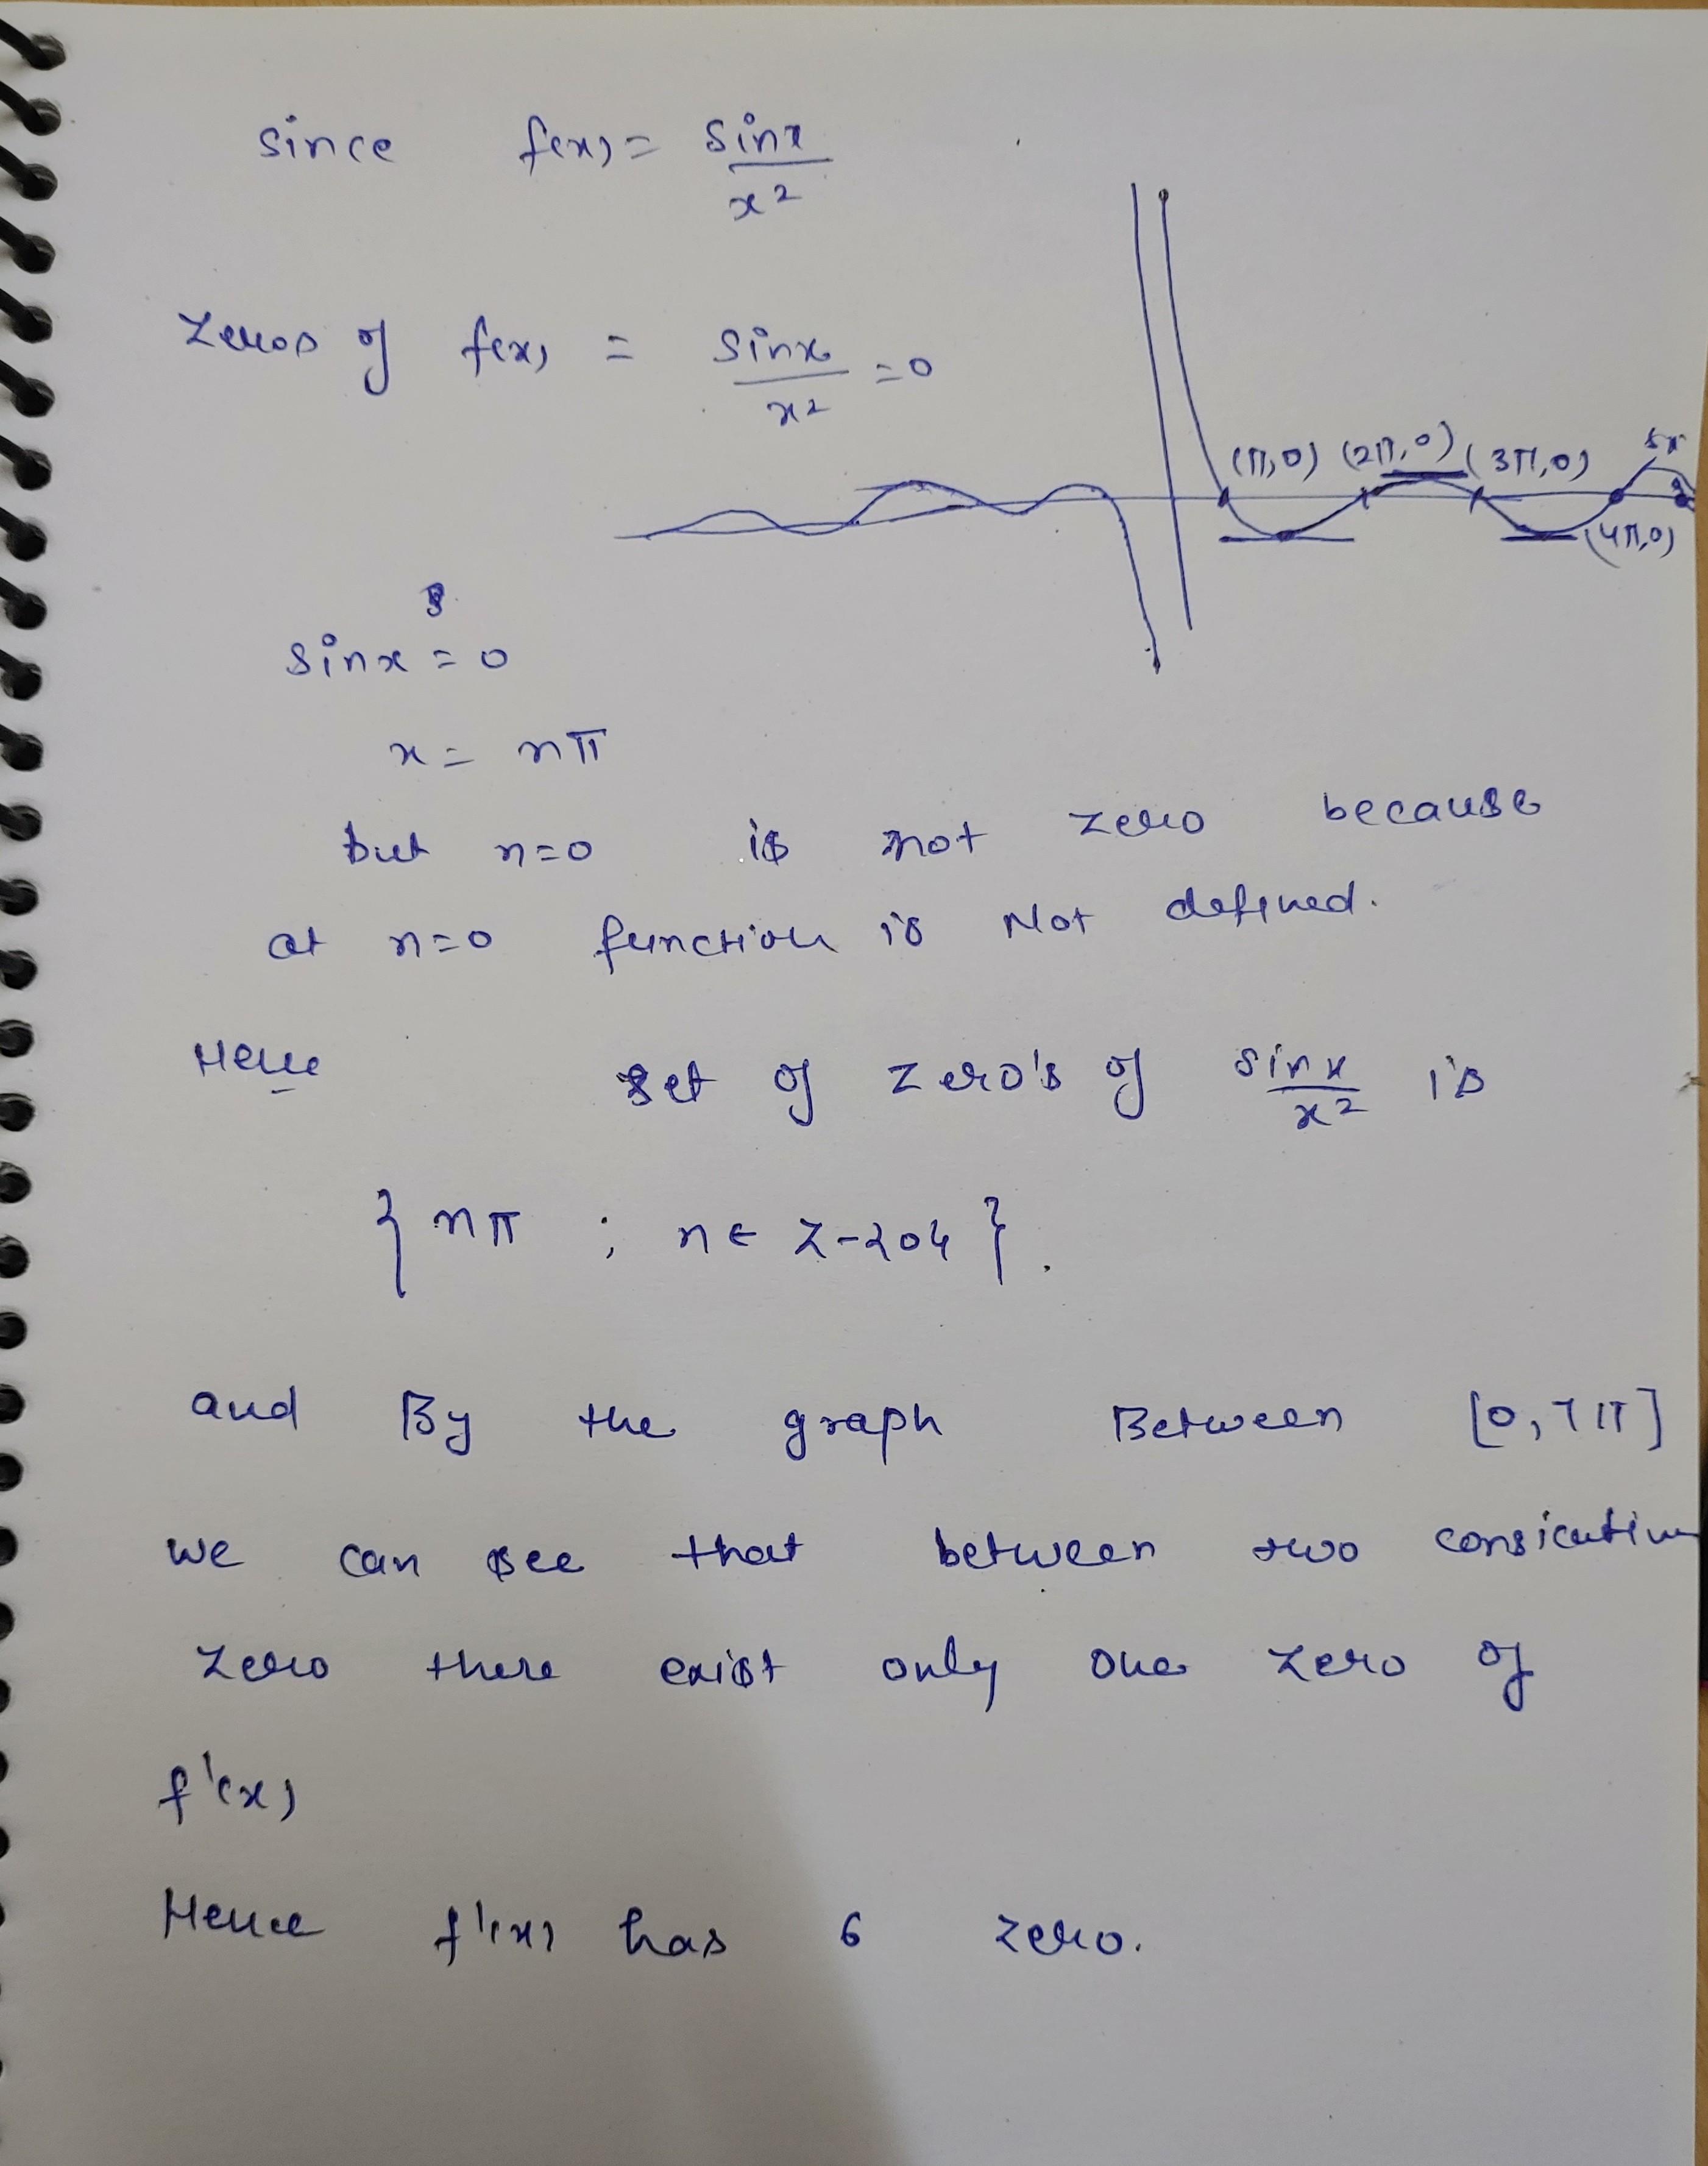 since f(x) = sinx / x²
zeros of f(x) = sinx / x² = 0
(π,0) (2π,0) (3π,0) 5π
(4π,0)
sinx = 0
x = nπ
but n=0 is not zero because
at n=0 function is Not defined.
Here set of zero's of sinx / x² is
{ nπ ; n ∈ Z-{0} }.
and By the graph Between [0,7π]
we can see that between two consicutive
zero there exist only one zero of
f'(x)
Hence f'(x) has 6 zero.